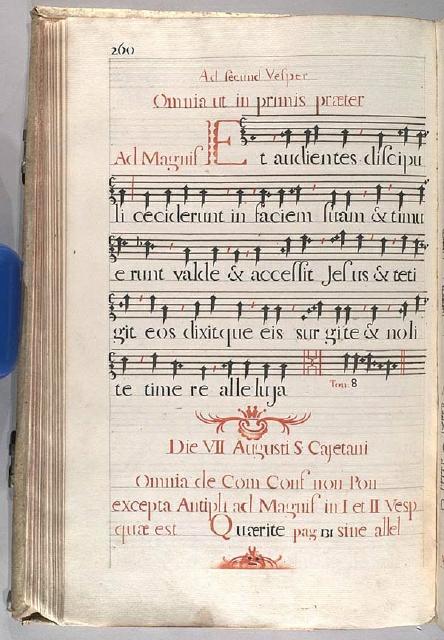 260
Ad secund Vesper
Omnia ut in primis præter
Ad Magnif Et audientes discipu
li ceciderunt in faciem suam & timu
e runt valde & accessit Jesus & teti
git eos dixitque eis sur gite & noli
te time re alleluja Ton: 8
Die VII Augusti S Cajetani
Omnia de Com Conf non Pon
excepta Antiph ad Magnif in I et II Vesp
quæ est Quærite pag sine allel